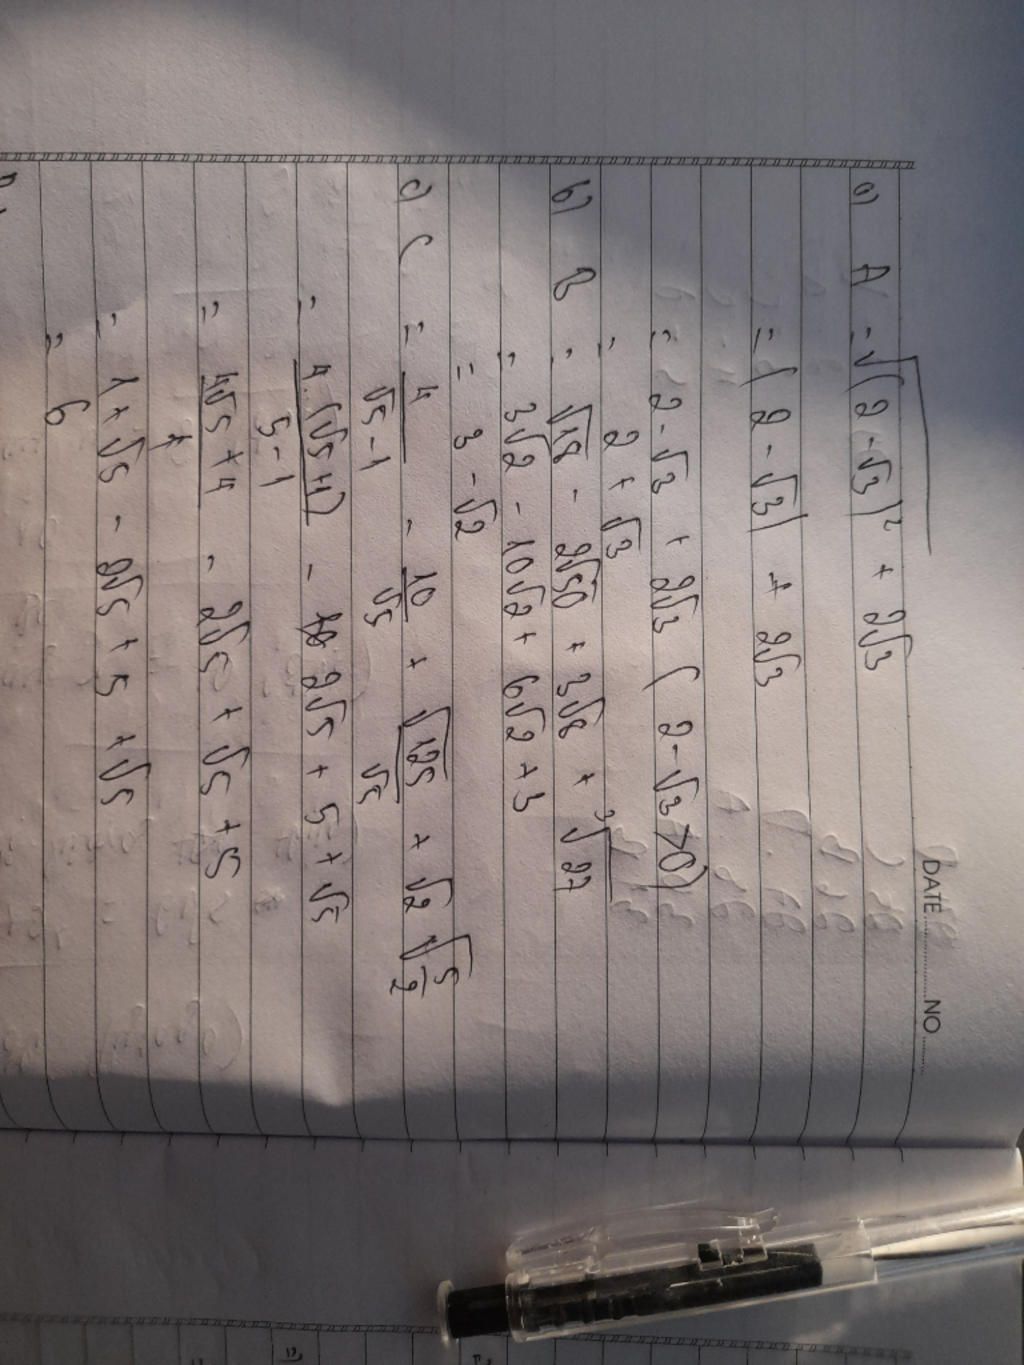 DATE NO
a) A = √(2 - √3)² + 2√3
= |2 - √3| + 2√3
= 2 - √3 + 2√3 (2 - √3 > 0)
= 2 + √3
b) B = √18 - 2√50 + 3√8 + ³√27
= 3√2 - 10√2 + 6√2 + 3
= 3 - √2
c) C = 4/(√5 - 1) - 10/√5 + √125/√5 + √2 √(5/2)
= 4.(√5 + 1)/(5 - 1) - 2√5 + 5 + √5
= (4√5 + 4)/4 - 2√5 + √5 + 5
= 1 + √5 - 2√5 + 5 + √5
= 6